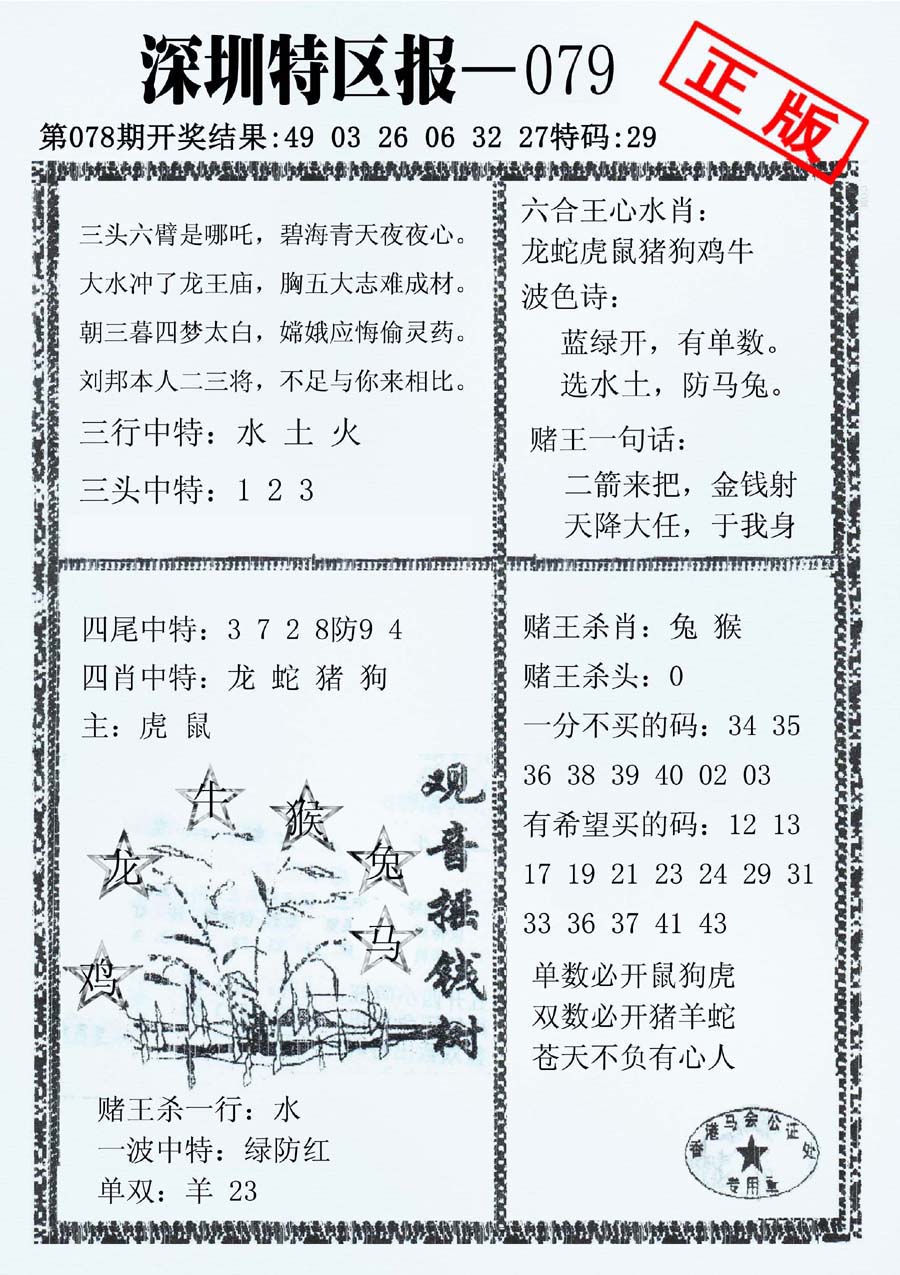 深圳特区报—079
正版
第078期开奖结果:49 03 26 06 32 27特码:29
三头六臂是哪吒，碧海青天夜夜心。
大水冲了龙王庙，胸五大志难成材。
朝三暮四梦太白，嫦娥应悔偷灵药。
刘邦本人二三将，不足与你来相比。
三行中特：水 土 火
三头中特：1 2 3
六合王心水肖：
龙蛇虎鼠猪狗鸡牛
波色诗：
蓝绿开，有单数。
选水土，防马兔。
赌王一句话：
二箭来把，金钱射
天降大任，于我身
四尾中特：3 7 2 8防9 4
四肖中特：龙 蛇 猪 狗
主：虎 鼠
牛
猴
龙
兔
马
鸡
观音摇钱树
赌王杀一行：水
一波中特：绿防红
单双：羊 23
赌王杀肖：兔 猴
赌王杀头：0
一分不买的码：34 35
36 38 39 40 02 03
有希望买的码：12 13
17 19 21 23 24 29 31
33 36 37 41 43
单数必开鼠狗虎
双数必开猪羊蛇
苍天不负有心人
香港马会公证处
专用章